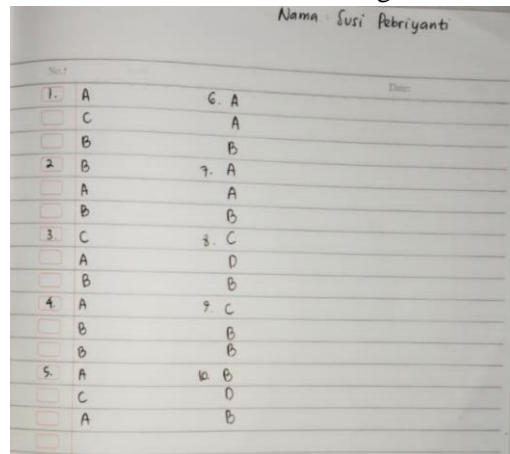 Nama : Susi Pebriyanti
No.:
Date:
1. A
C
B
2 B
A
B
3. C
A
B
4. A
B
B
5. A
C
A
6. A
A
B
7. A
A
B
8. C
D
B
9. C
B
B
10. B
D
B